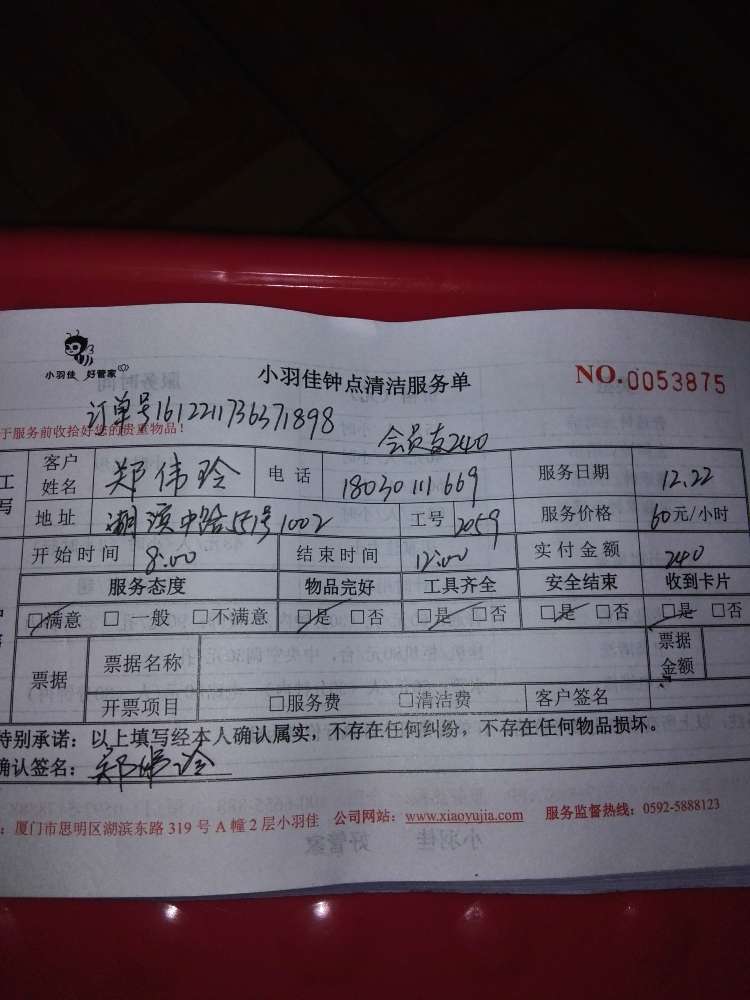 小羽佳 好管家
小羽佳钟点清洁服务单
NO.0053875
订单号1612211736371898
于服务前收拾好您的贵重物品!
会员支240
工 客户姓名 郑伟玲 电话 18030111669 服务日期 12.22
写 地址 湖滨中路551号1002 工号 2059 服务价格 60元/小时
开始时间 8:00 结束时间 12:00 实付金额 240
服务态度 物品完好 工具齐全 安全结束 收到卡片
□满意 □一般 □不满意 □是 □否 □是 □否 □是 □否 □是 □否
票据 票据名称 票据金额
开票项目 □服务费 □清洁费 客户签名
特别承诺：以上填写经本人确认属实，不存在任何纠纷，不存在任何物品损坏。
确认签名：郑伟玲
：厦门市思明区湖滨东路 319 号 A 幢 2 层小羽佳 公司网站：www.xiaoyujia.com 服务监督热线：0592-5888123